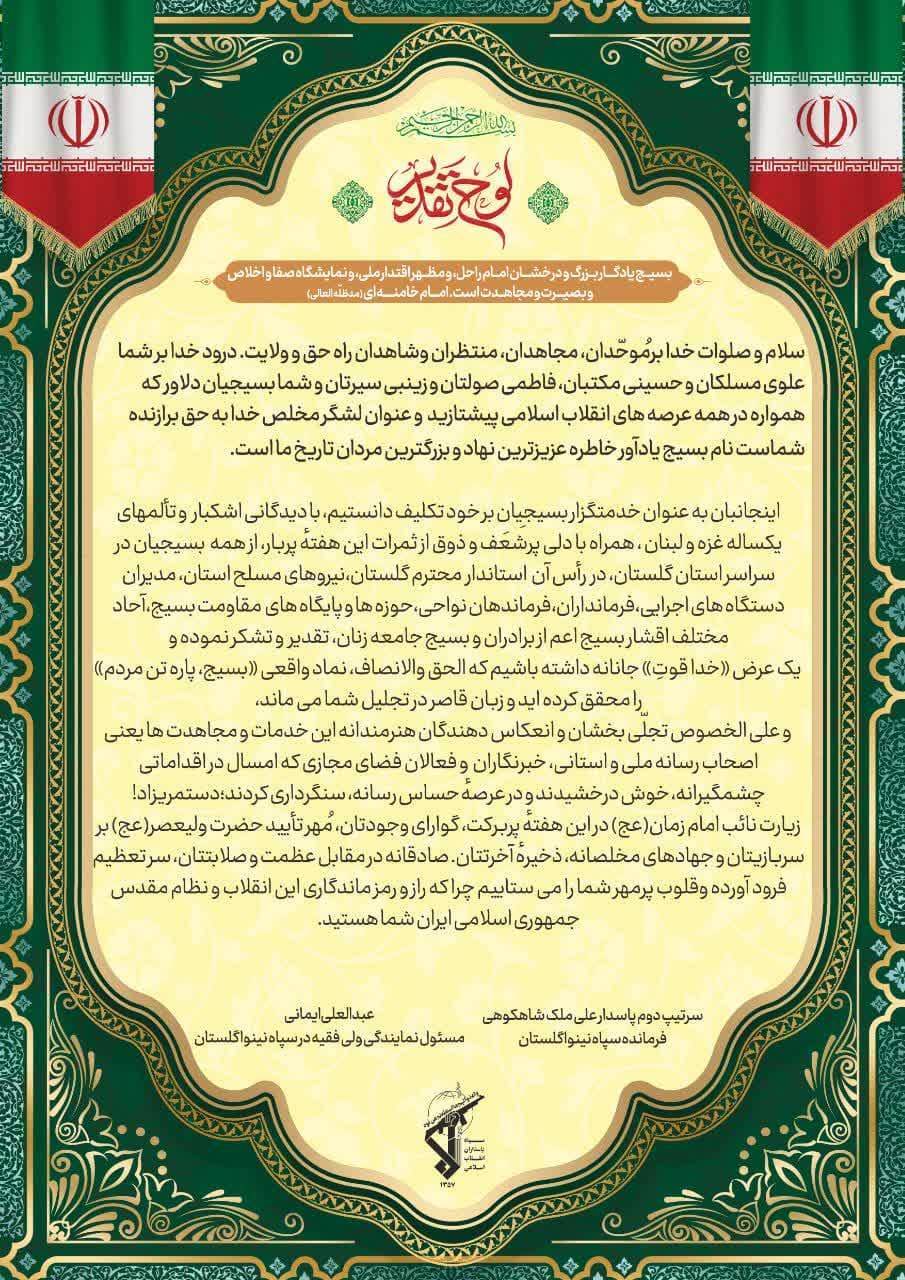 بسم الله الرحمن الرحیم
لوح تقدیر
بسیج یادگار بزرگ و درخشان امام راحل، و مظهر اقتدار ملی، و نمایشگاه صفا و اخلاص
و بصیرت و مجاهدت است. امام خامنه‌ای (مدظلّه‌العالی)
سلام و صلوات خدا بر مُوحّدان، مجاهدان، منتظران و شاهدان راه حق و ولایت. درود خدا بر شما
علوی مسلکان و حسینی مکتبان، فاطمی صولتان و زینبی سیرتان و شما بسیجیان دلاور که
همواره در همه عرصه های انقلاب اسلامی پیشتازید و عنوان لشگر مخلص خدا به حق برازنده
شماست نام بسیج یادآور خاطره عزیزترین نهاد و بزرگترین مردان تاریخ ما است.
اینجانبان به عنوان خدمتگزار بسیجیان بر خود تکلیف دانستیم، با دیدگانی اشکبار و تألمهای
یکساله غزه و لبنان ، همراه با دلی پرشَعَف و ذوق از ثمرات این هفتهٔ پربار، از همه بسیجیان در
سراسر استان گلستان، در رأس آن استاندار محترم گلستان،نیروهای مسلح استان، مدیران
دستگاه های اجرایی،فرمانداران،فرماندهان نواحی،حوزه ها و پایگاه های مقاومت بسیج،آحاد
مختلف اقشار بسیج اعم از برادران و بسیج جامعه زنان، تقدیر و تشکر نموده و
یک عرض «خدا قوتِ» جانانه داشته باشیم که الحق والانصاف، نماد واقعی «بسیج، پاره تن مردم»
را محقق کرده اید و زبان قاصر در تجلیل شما می ماند،
و علی الخصوص تجلّی بخشان و انعکاس دهندگان هنرمندانه این خدمات و مجاهدت ها یعنی
اصحاب رسانه ملی و استانی، خبرنگاران و فعالان فضای مجازی که امسال در اقداماتی
چشمگیرانه، خوش درخشیدند و در عرصهٔ حساس رسانه، سنگرداری کردند؛دستمریزاد!
زیارت نائب امام زمان(عج) در این هفتهٔ پربرکت، گوارای وجودتان، مُهر تأیید حضرت ولیعصر(عج) بر
سربازیتان و جهادهای مخلصانه، ذخیرهٔ آخرتتان. صادقانه در مقابل عظمت و صلابتتان، سر تعظیم
فرود آورده وقلوب پرمهر شما را می ستاییم چرا که راز و رمز ماندگاری این انقلاب و نظام مقدس
جمهوری اسلامی ایران شما هستید.
سرتیپ دوم پاسدار علی ملک شاهکوهی
فرمانده سپاه نینوا گلستان
عبدالعلی ایمانی
مسئول نمایندگی ولی فقیه در سپاه نینوا گلستان
سپاه
پاسداران
انقلاب
اسلامی
۱۳۵۷